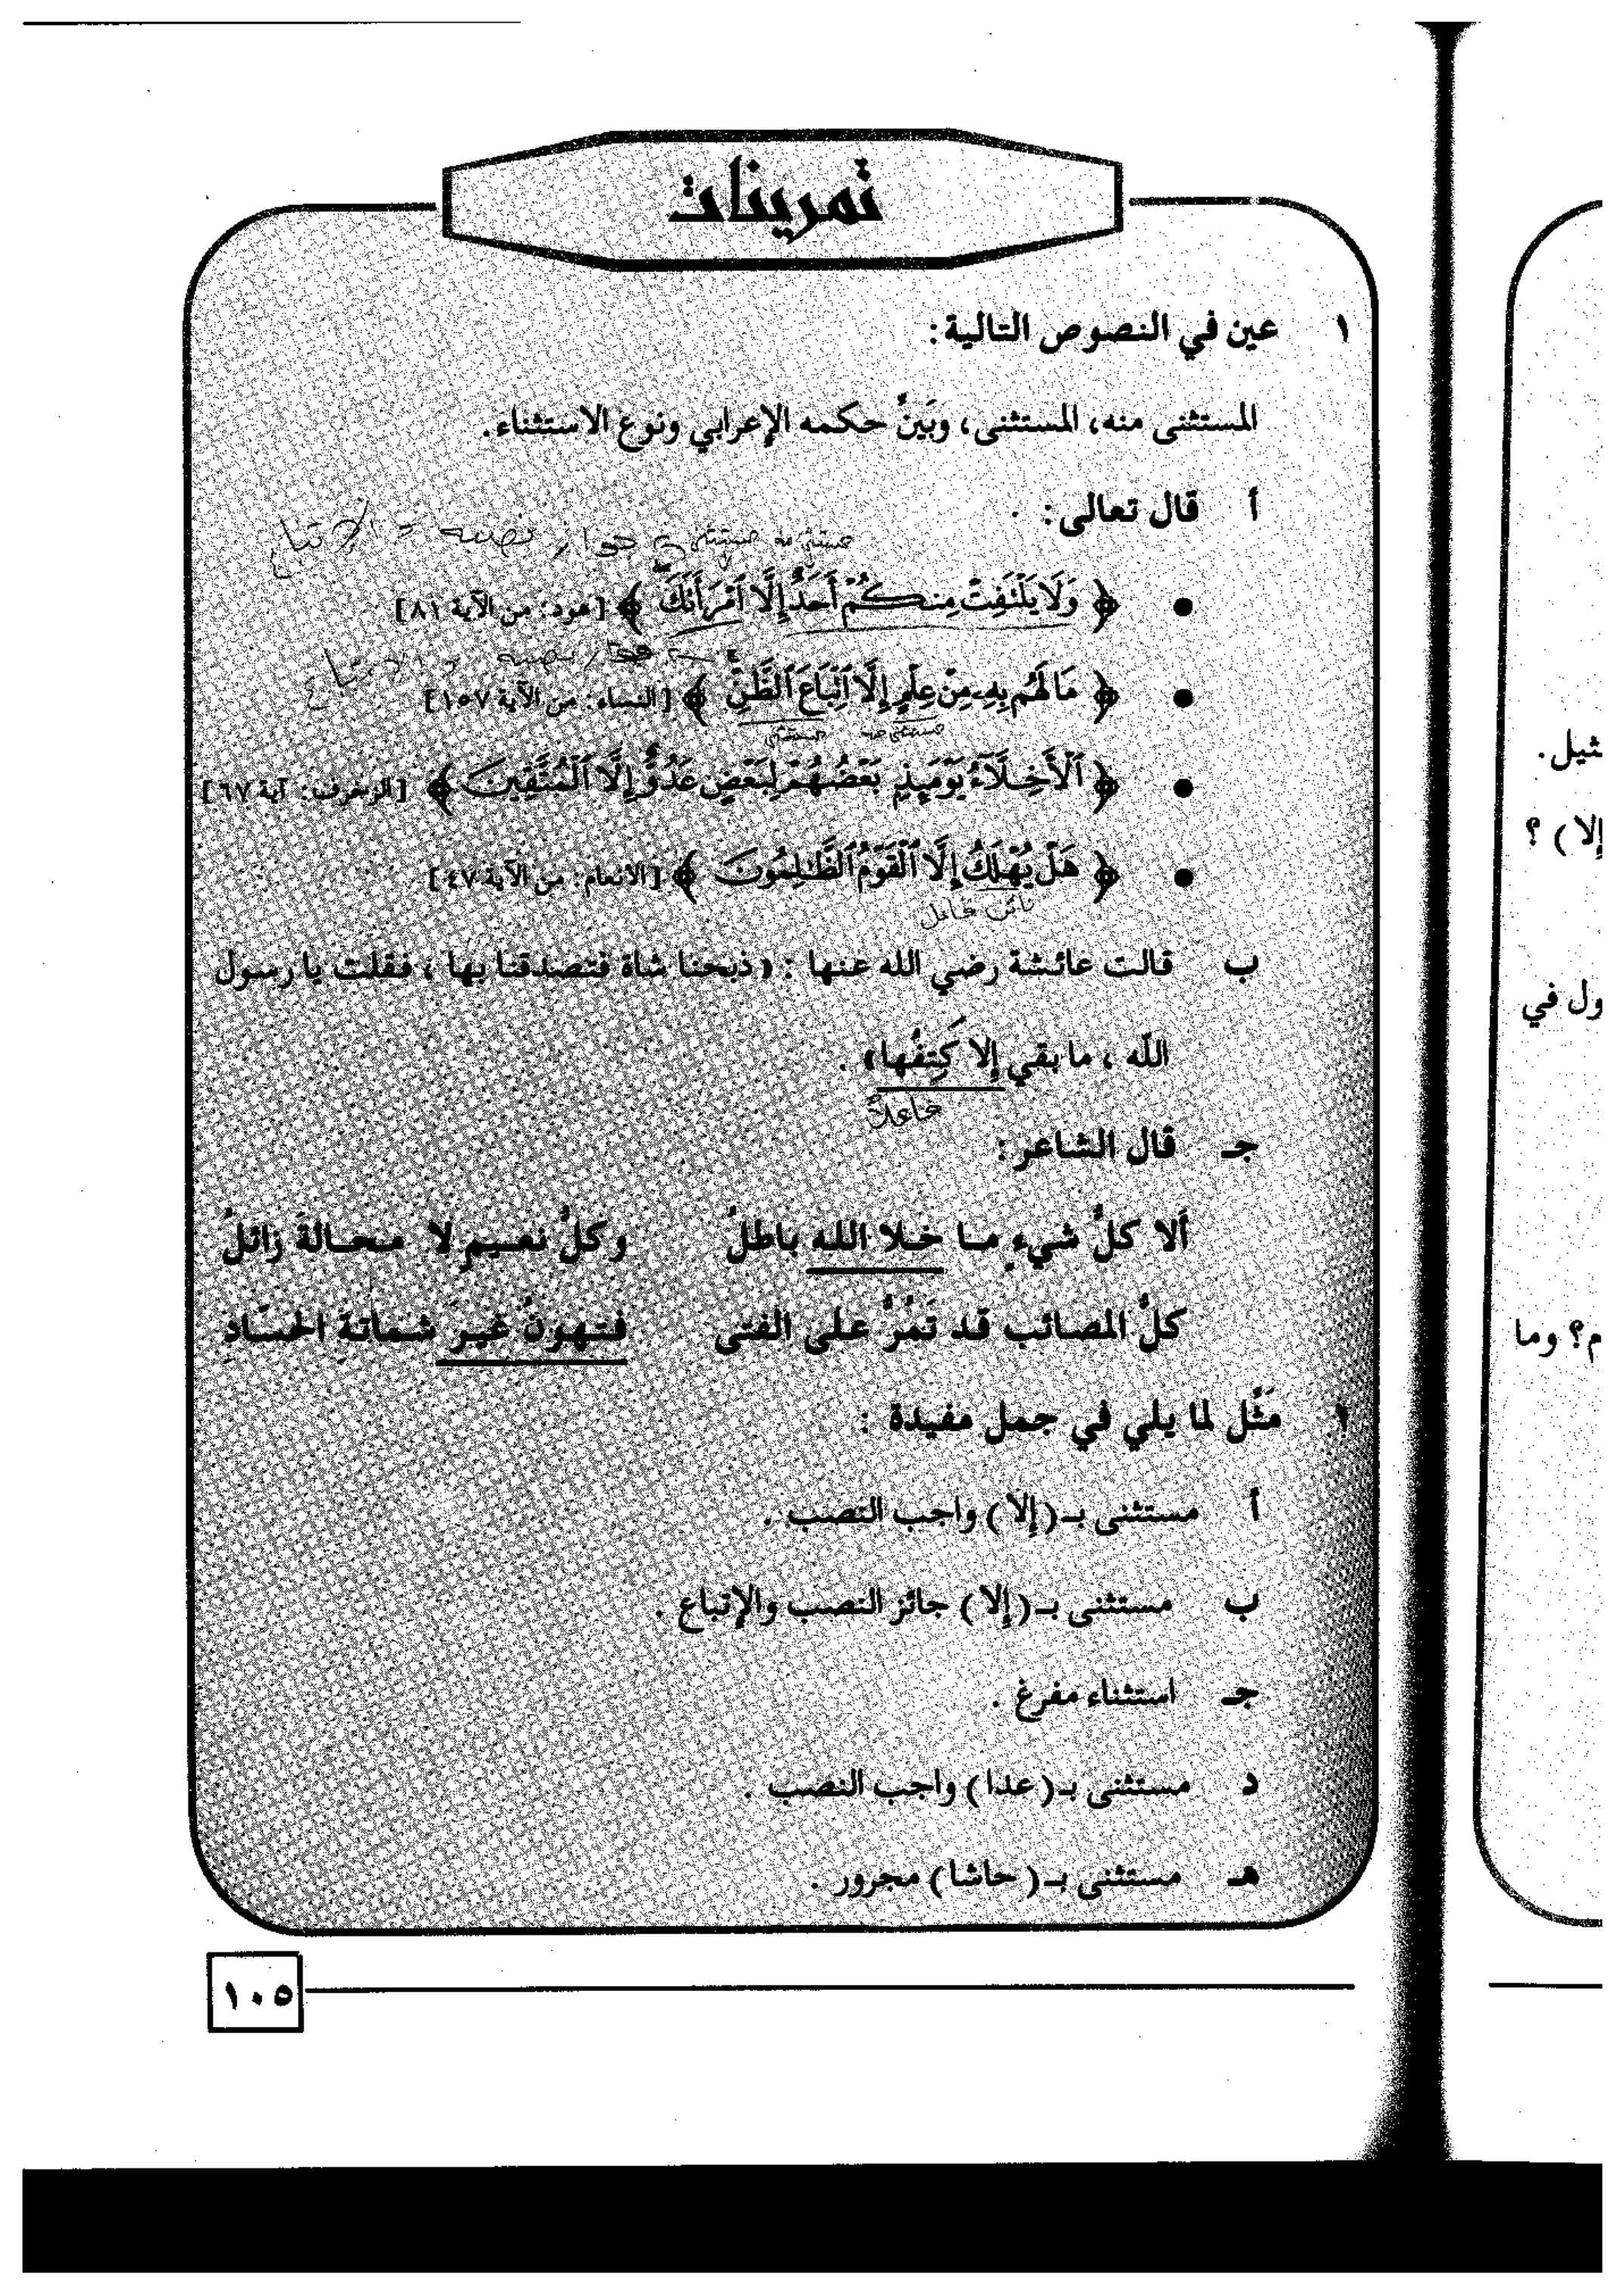 تمرينات
١ عين في النصوص التالية:
المستثنى منه، المستثنى، وبَينْ حكمه الإعرابي ونوع الاستثناء.
أ قال تعالى:
مستثنى منه مستثنى جواز نصبه و الإتباع
• ﴿ وَلَا يَلْتَفِتْ مِنكُمْ أَحَدٌ إِلَّا ٱمْرَأَتَكَ ﴾ [هود: من الآية ٨١]
جواز نصبه و الاتباع
• ﴿ مَا لَهُم بِهِۦ مِنْ عِلْمٍ إِلَّا ٱتِّبَاعَ ٱلظَّنِّ ﴾ [النساء: من الآية ١٥٧]
مستثنى منه مستثنى
• ﴿ ٱلْأَخِلَّآءُ يَوْمَئِذٍ بَعْضُهُمْ لِبَعْضٍ عَدُوٌّ إِلَّا ٱلْمُتَّقِينَ ﴾ [الزخرف: آية ٦٧]
• ﴿ هَلْ يُهْلَكُ إِلَّا ٱلْقَوْمُ ٱلظَّٰلِمُونَ ﴾ [الأنعام: من الآية ٤٧]
نائب فاعل
ب قالت عائشة رضي الله عنها : « ذبحنا شاة فتصدقنا بها ، فقلت يا رسول
اللّه ، ما بقي إلا كَتِفُها» .
فاعلاً
جـ قال الشاعر :
ألا كلُّ شيءٍ ما خلا الله باطلُ وكلُّ نعيمٍ لا محالةَ زائلُ
كلُّ المصائب قد تَمُرُّ على الفتى فتهونُ غيرَ شماتةِ الحسّادِ
١ مَثِّل لما يلي في جمل مفيدة :
أ مستثنى بـ (إلا) واجب النصب .
ب مستثنى بـ (إلا) جائز النصب والإتباع .
جـ استثناء مفرغ .
د مستثنى بـ (عدا) واجب النصب .
هـ مستثنى بـ (حاشا) مجرور .
١٠٥
ثيل .
إلا) ؟
ول في
م؟ وما